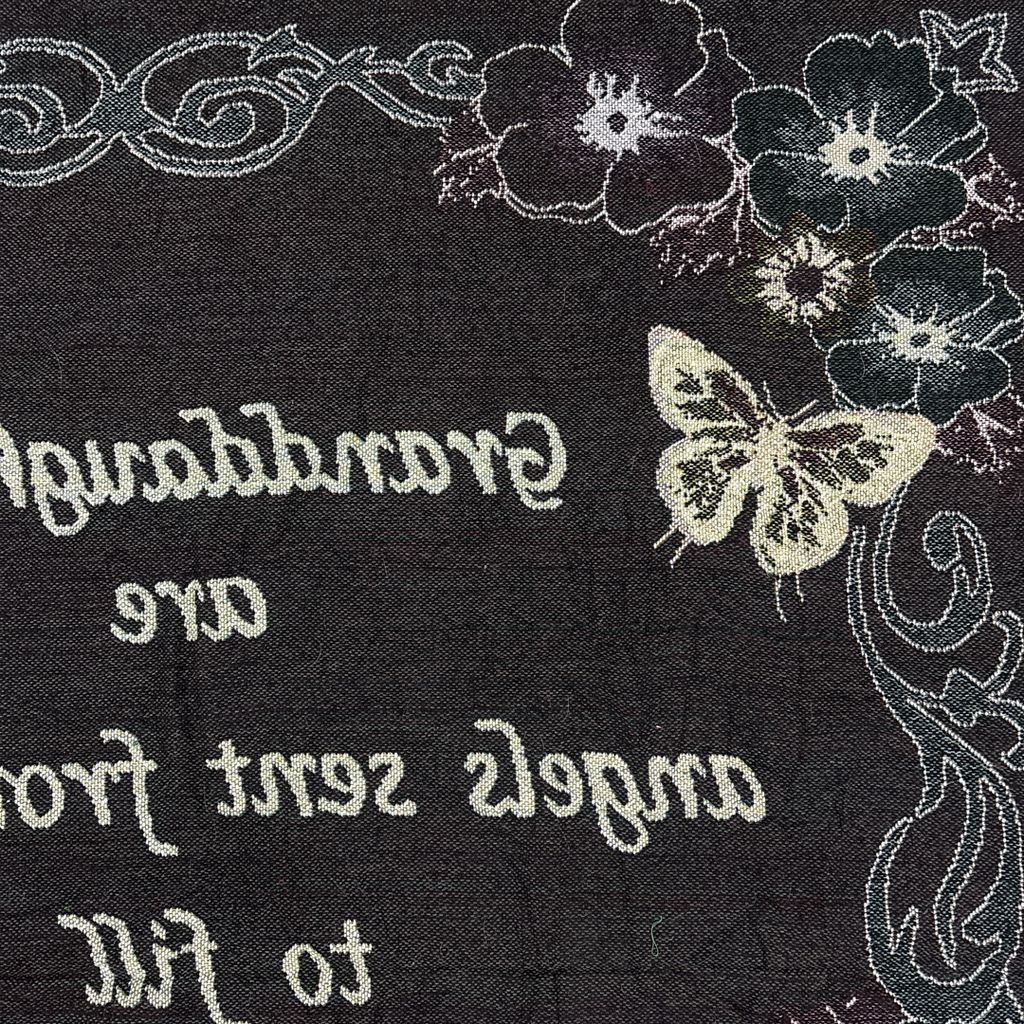 Granddaugh
are
angels sent from
to fill